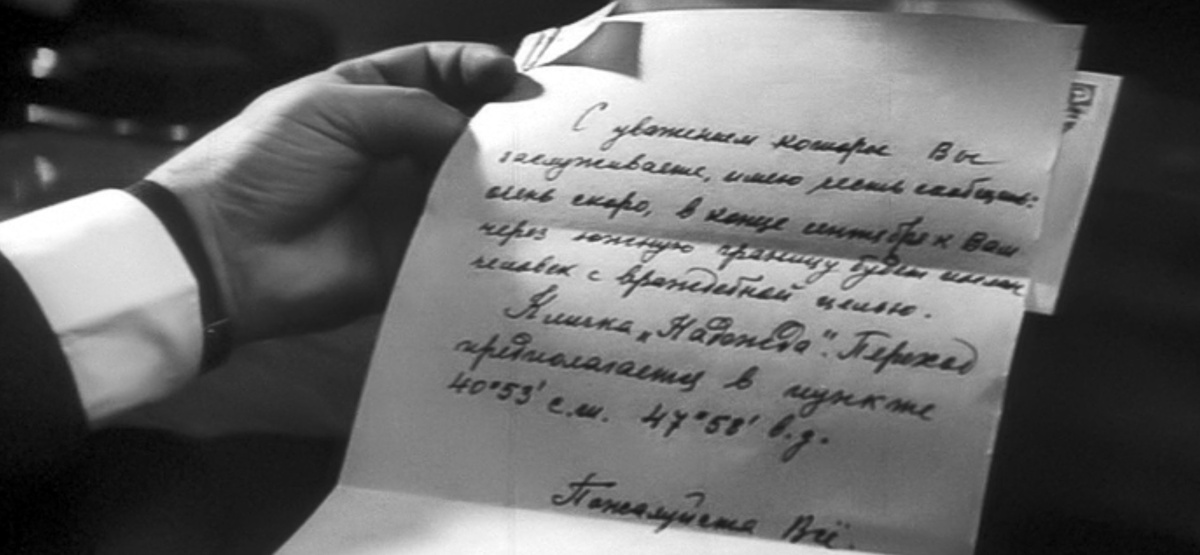 С уважением которое Вы
заслуживаете, имею честь сообщить:
очень скоро, в конце сентября к Вам
через южную границу будет послан
человек с враждебной целью.
Кличка „Надежда“. Переход
предполагается в пункте
40°53' с.ш. 47°58' в.д.
Пожалуйста Всё.